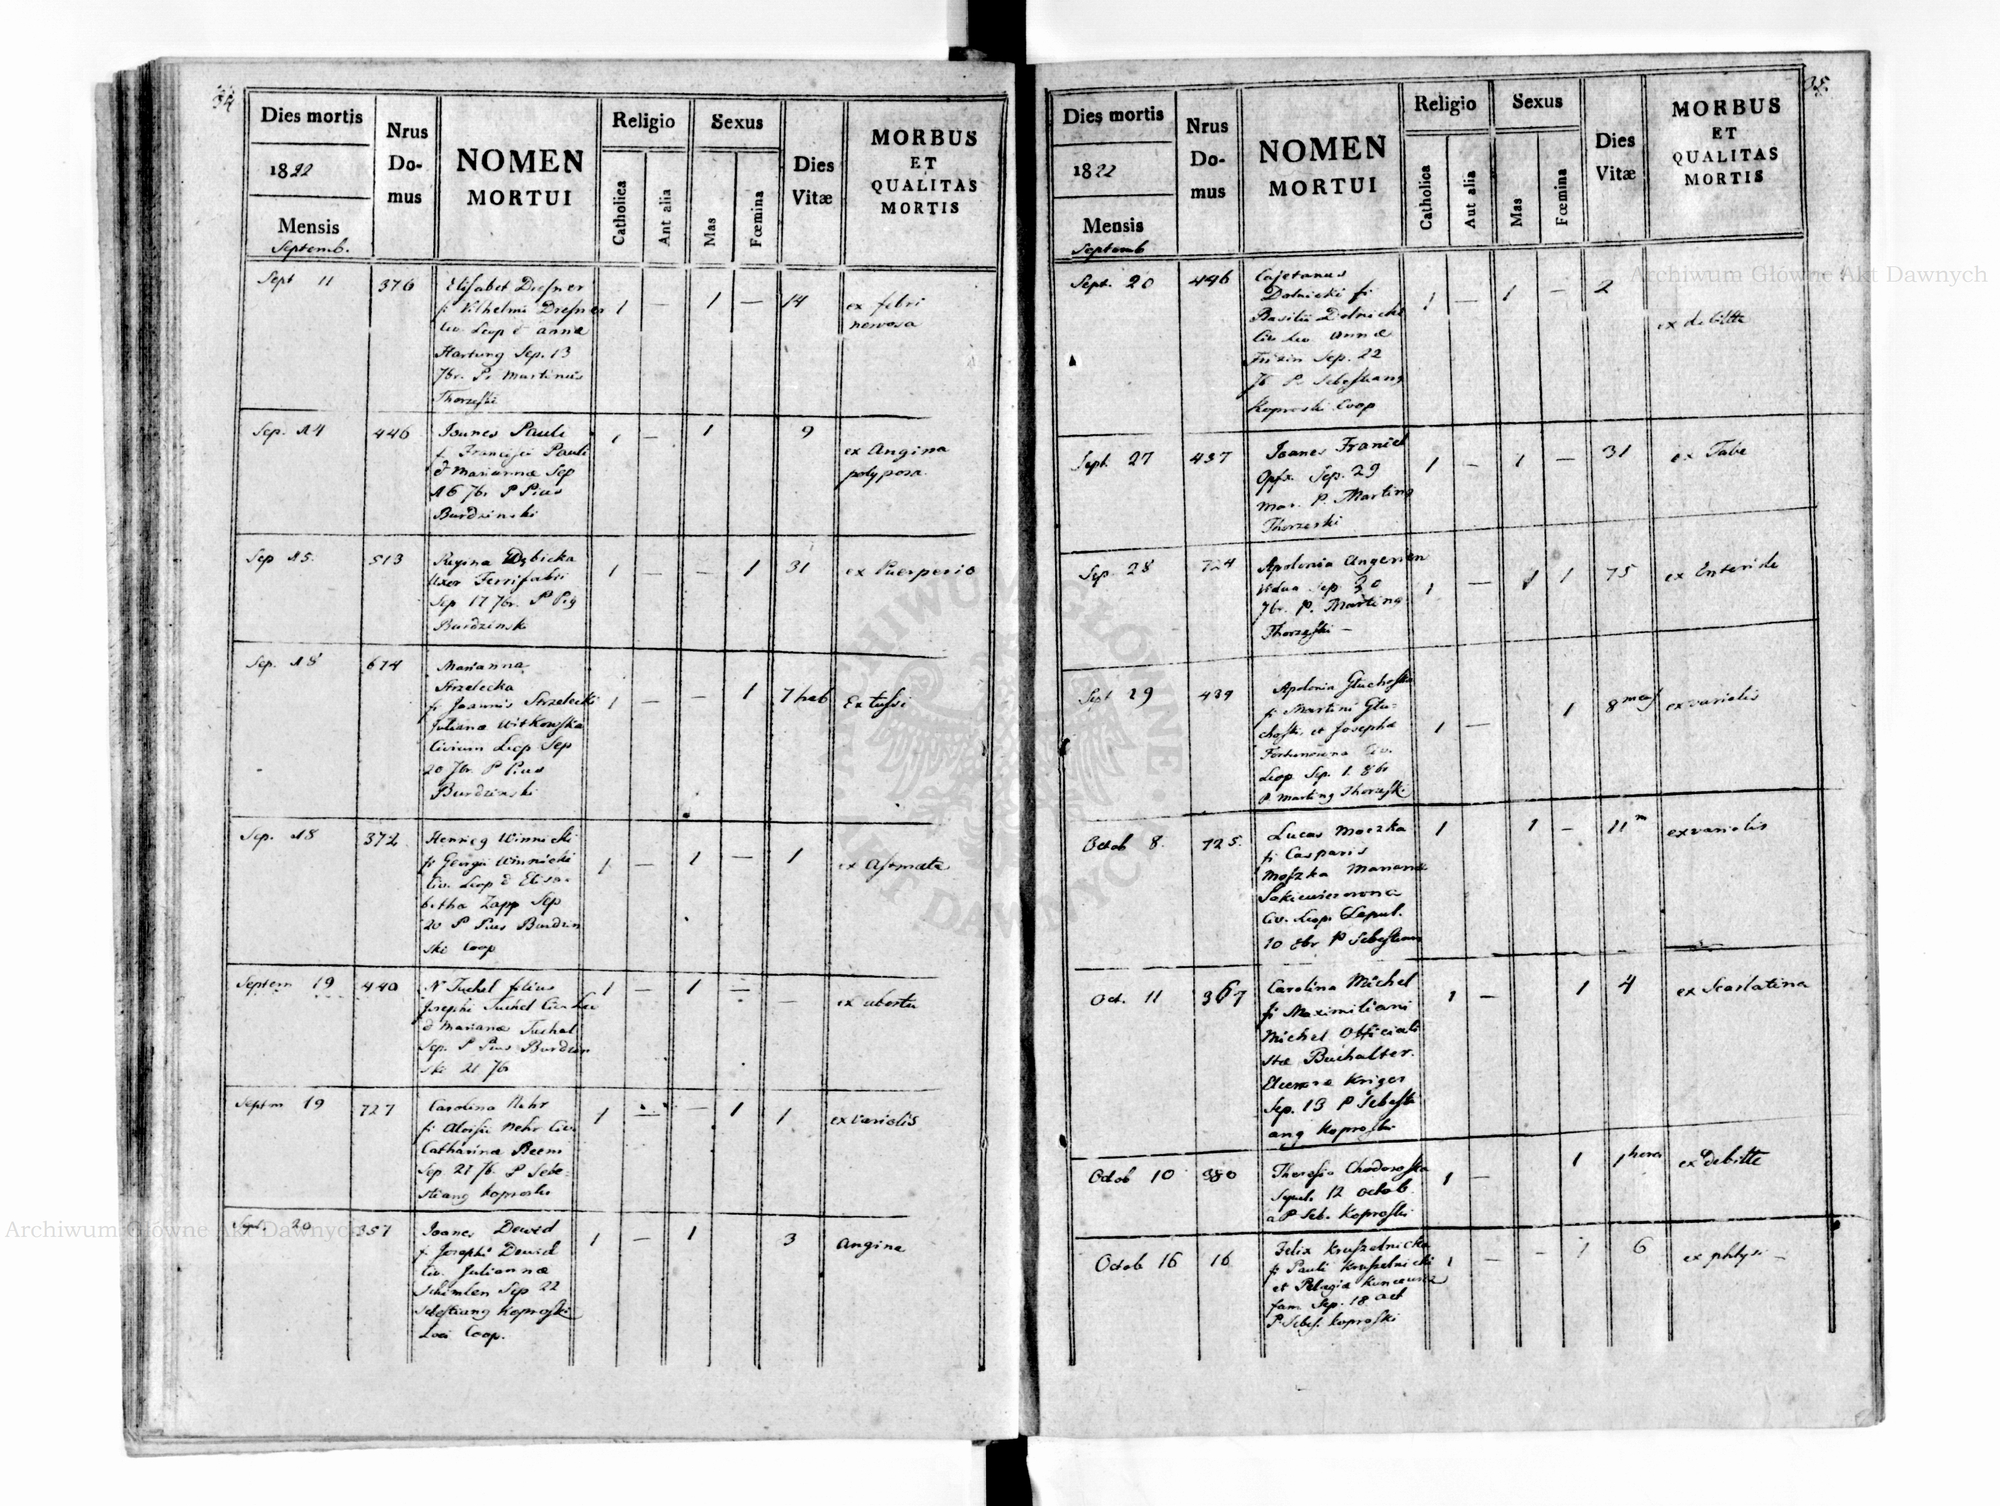 34
Dies mortis
1822
Mensis
Septemb.
Nrus
Do-
mus
NOMEN
MORTUI
Religio
Catholica
Aut alia
Sexus
Mas
Fœmina
Dies
Vitæ
MORBUS
ET
QUALITAS
MORTIS
Sept 11 376 1 — 1 — 14
Elisabet Dresner
fi Vilhelmi Dresner
Civ. Leop & Anna
Hartung Sep. 13
7br. P. Martinus
Thorzeski
ex febri
nervosa
Sep. 14 446 1 — 1 9
Joanes Pauli
f. Francisci Pauli
& Mariannæ Sep
16 7br P Pius
Burdzinski
ex Angina
polyposa
Sep 15. 513 1 — — 1 31
Regina Dębicka
Uxor Ferrifabri
Sep 17 7br. P Pig
Burdzinski
ex Puerperio
Sep. 18 674 1 — — 1 7 heb
Marianna
Strzelecka
fi Joannis Strzelecki
Juliana Witkowska
Civium Leop Sep
20 7br. P Pius
Burdzinski
Ex tussi
Sep. 18 372 1 — 1 — 1
Henricg Winnicki
fi Georgii Winnicki
Civ. Leop & Elisa-
betha Zapp Sep
20 P Pius Burdzin
ski Coop
ex Asmate
Septem 19 440 1 — 1 — —
N Tuchel filius
Josephi Tuchel Civ Leo
& Marianæ Tuchel
Sep. P Pius Burdzin
ski 21 7br
ex abortu
Septem 19 727 1 — — 1 1
Carolina Nehr
fi Aloisii Nehr Civ
Catharinæ Beem
Sep 21 7b. P Seba-
stiang Koproski
ex variolis
Sept. 20 357 1 — 1 3
Joanes Dewid
f. Josephi Dewid
Civ. Juliannæ
Schimlen Sep 22
Sebestiang Koproski
Loci Coop.
Angina
35.
Dies mortis
1822
Mensis
Septemb
Nrus
Do-
mus
NOMEN
MORTUI
Religio
Catholica
Aut alia
Sexus
Mas
Fœmina
Dies
Vitæ
MORBUS
ET
QUALITAS
MORTIS
Sept. 20 446 1 — 1 — 2
Cajetanus
Dolnicki fi
Basilii Dolnicki
Civ Leo. Annæ
Sep. 22
7b P. Sebestiang
Koproski Coop
ex debilitte
Sept. 27 437 1 — 1 — 31
Joanes Franiel
Opfx. Sep. 29
P. Marting
Thorzeski
ex Tabe
Sep. 28 724 1 — 1 1 75
Apolonia Angerien
Vidua Sep. 30
7br. P. Marting
Thorzeski —
ex Enteride
Sept 29 439 1 — 1 8 mens
Apolonia Gluchoska
fi Martini Glu-
choski et Josepha
Fortunówna Civ.
Leop Sep. 1. 8br
P. Marting Thorzeski
ex variolis
Octob 8. 725. 1 1 — 11 m
Lucas Moszka
fi Casparis
Moszka Mariana
Sakiewiczowna
Civ. Leop. Sepul.
10 8br P Sebestian
ex variolis
Oct. 11 367 1 — 1 4
Carolina Michel
fi Maximiliani
Michel Officiali
stæ Buchalter.
Eleonora Kriger
Sep. 13 P Sebesti
ang Koproski
ex Scarlatina
Octob 10 380 1 — 1 1 hora
Theresia Chodoroska
Sepul. 12 octob
a P Seb. Koproski
ex debilitte
Octob 16 16 1 — — 1 6
Felix Kruszelnicka
fi Pauli Kruszelnicki
et Pelagiæ Kuncewicz
fam. Sep. 18 oct
P. Sebes. Koproski
ex phtysi —
Archiwum Główne Akt Dawnych
Archiwum Główne Akt Dawnych
ARCHIWUM GŁÓWNE AKT DAWNYCH